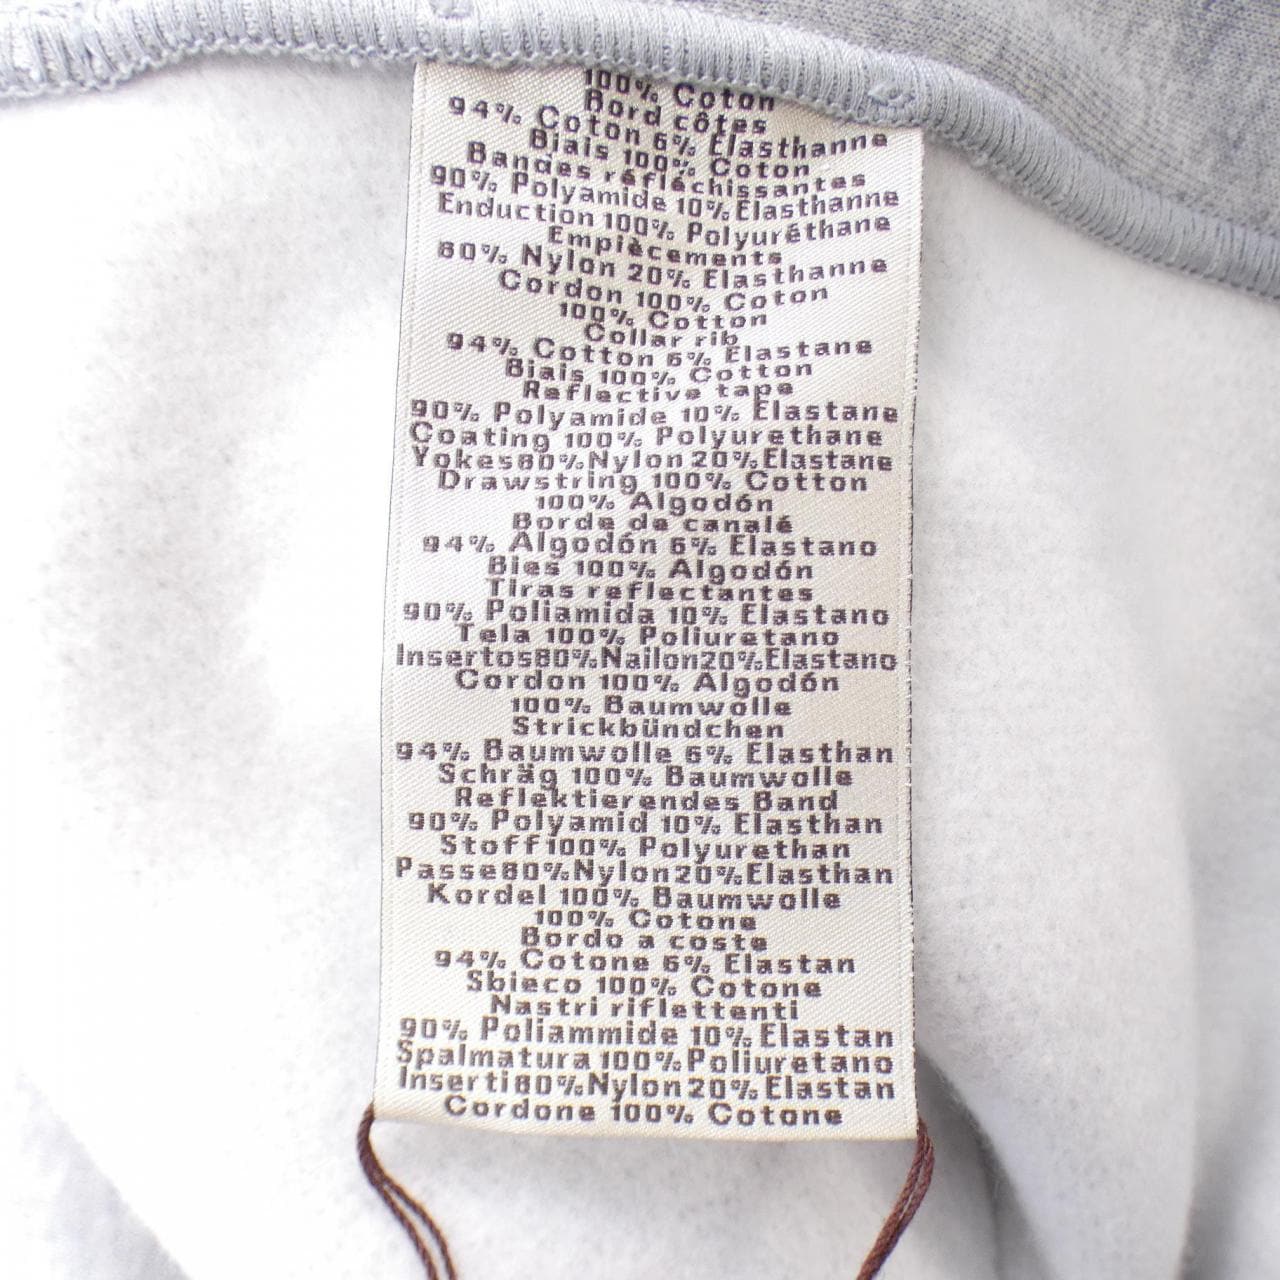 100% Coton
Bord côtes
94% Coton 6% Elasthanne
Biais 100% Coton
Bandes réfléchissantes
90% Polyamide 10% Elasthanne
Enduction 100% Polyuréthane
Empiècements
80% Nylon 20% Elasthanne
Cordon 100% Coton
100% Cotton
Collar rib
94% Cotton 6% Elastane
Biais 100% Cotton
Reflective tape
90% Polyamide 10% Elastane
Coating 100% Polyurethane
Yokes80%Nylon20%Elastane
Drawstring 100% Cotton
100% Algodón
Borde de canalé
94% Algodón 6% Elastano
Bies 100% Algodón
Tiras reflectantes
90% Poliamida 10% Elastano
Tela 100% Poliuretano
Insertos80%Nailon20%Elastano
Cordon 100% Algodón
100% Baumwolle
Strickbündchen
94% Baumwolle 6% Elasthan
Schräg 100% Baumwolle
Reflektierendes Band
90% Polyamid 10% Elasthan
Stoff100% Polyurethan
Passe80%Nylon20%Elasthan
Kordel 100% Baumwolle
100% Cotone
Bordo a coste
94% Cotone 6% Elastan
Sbieco 100% Cotone
Nastri riflettenti
90% Poliammide 10% Elastan
Spalmatura100%Poliuretano
Inserti80%Nylon20%Elastan
Cordone 100% Cotone